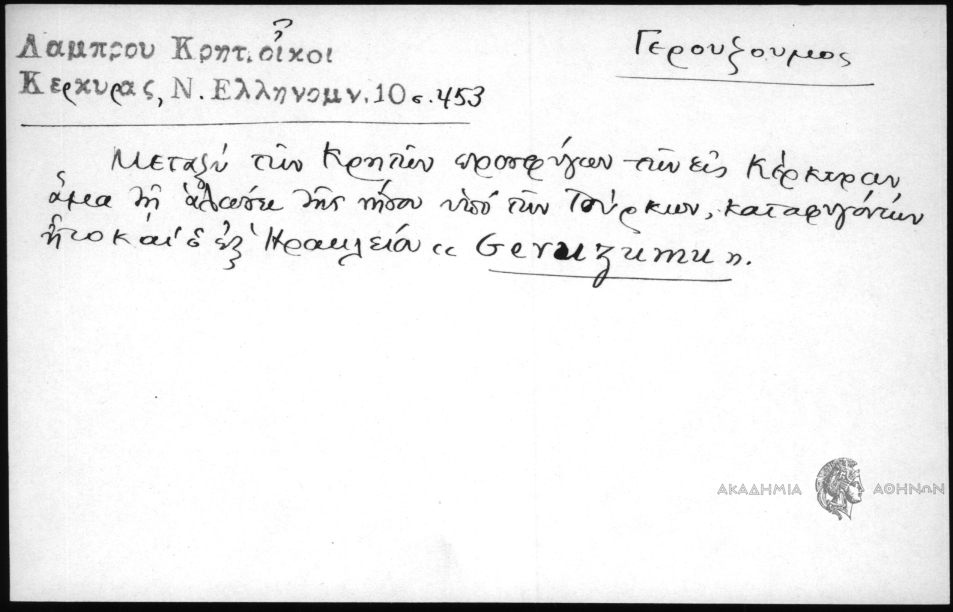 Λαμπρου Κρητ. οἶκοι
Κερκυρας, Ν. Ελληνομν. 10 σ. 453
Γερουζουμος
Μεταξύ τῶν Κρητῶν προσφύγων τῶν εἰς Κέρκυραν
ἅμα τῇ ἁλώσει τῆς νήσου ὑπό τῶν Τούρκων, καταφυγόντων
ἦτο καί ὁ ἐξ Ἡρακλείου « Geruzumu ».
ΑΚΑΔΗΜΙΑ ΑΘΗΝΩΝ